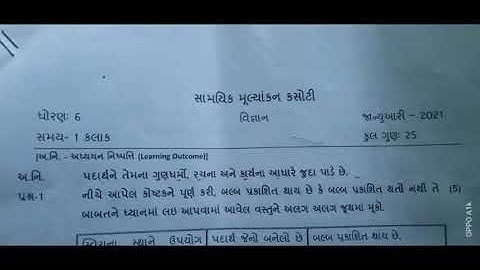 સામયિક મૂલ્યાંકન કસોટી
ધોરણઃ 6 વિજ્ઞાન જાન્યુઆરી – 2021
સમય- 1 કલાક કુલ ગુણઃ 25
[અ.નિ. - અધ્યયન નિષ્પત્તિ (Learning Outcome)]
અ.નિ. પદાર્થને તેમના ગુણધર્મો, રચના અને કાર્યના આધારે જુદા પાડે છે.
પ્રશ્ન-1 નીચે આપેલ કોષ્ટકને પૂર્ણ કરી, બલ્બ પ્રકાશિત થાય છે કે બલ્બ પ્રકાશિત થતો નથી તે (5)
બાબતને ધ્યાનમાં લઇ આપવામાં આવેલ વસ્તુને અલગ અલગ જૂથમાં મૂકો.
સ્થાને ઉપયોગ પદાર્થ જેનો બનેલો છે બલ્બ પ્રકાશિત થાય છે.
OPPO A1k